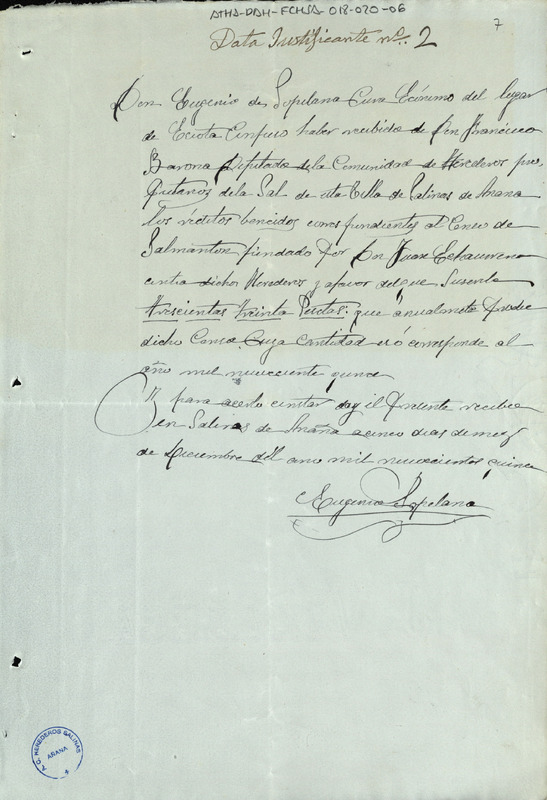 ATHA-DAH-FCHSA-018-020-06
7
Data Justificante nº. 2
Don Eugenio de Sopelana Cura Ecónomo del lugar
de Escota Confieso haber recibido de Don Francisco
Barona Diputado de la Comunidad de Herederos pro
pietarios de la Sal de esta Villa de Salinas de Anana
los reditos bencidos correspundientes al Censo de
Salmanton fundado por Don Juan Echaurrena
contra dichos Herederos y a favor del que suscribe
trescientas treinta Pesetas: que anualmente produce
dicho Censo. Cuya Cantidad es ó corresponde al
año mil nuevecientos quince
Y para acerlo constar doy el presente recibo
en Salinas de Anaña a cinco dias de mes
de Diciembre del ano mil nuevecientos quince
Eugenio Sopelana
A. G. HEREDEROS SALINAS
AÑANA